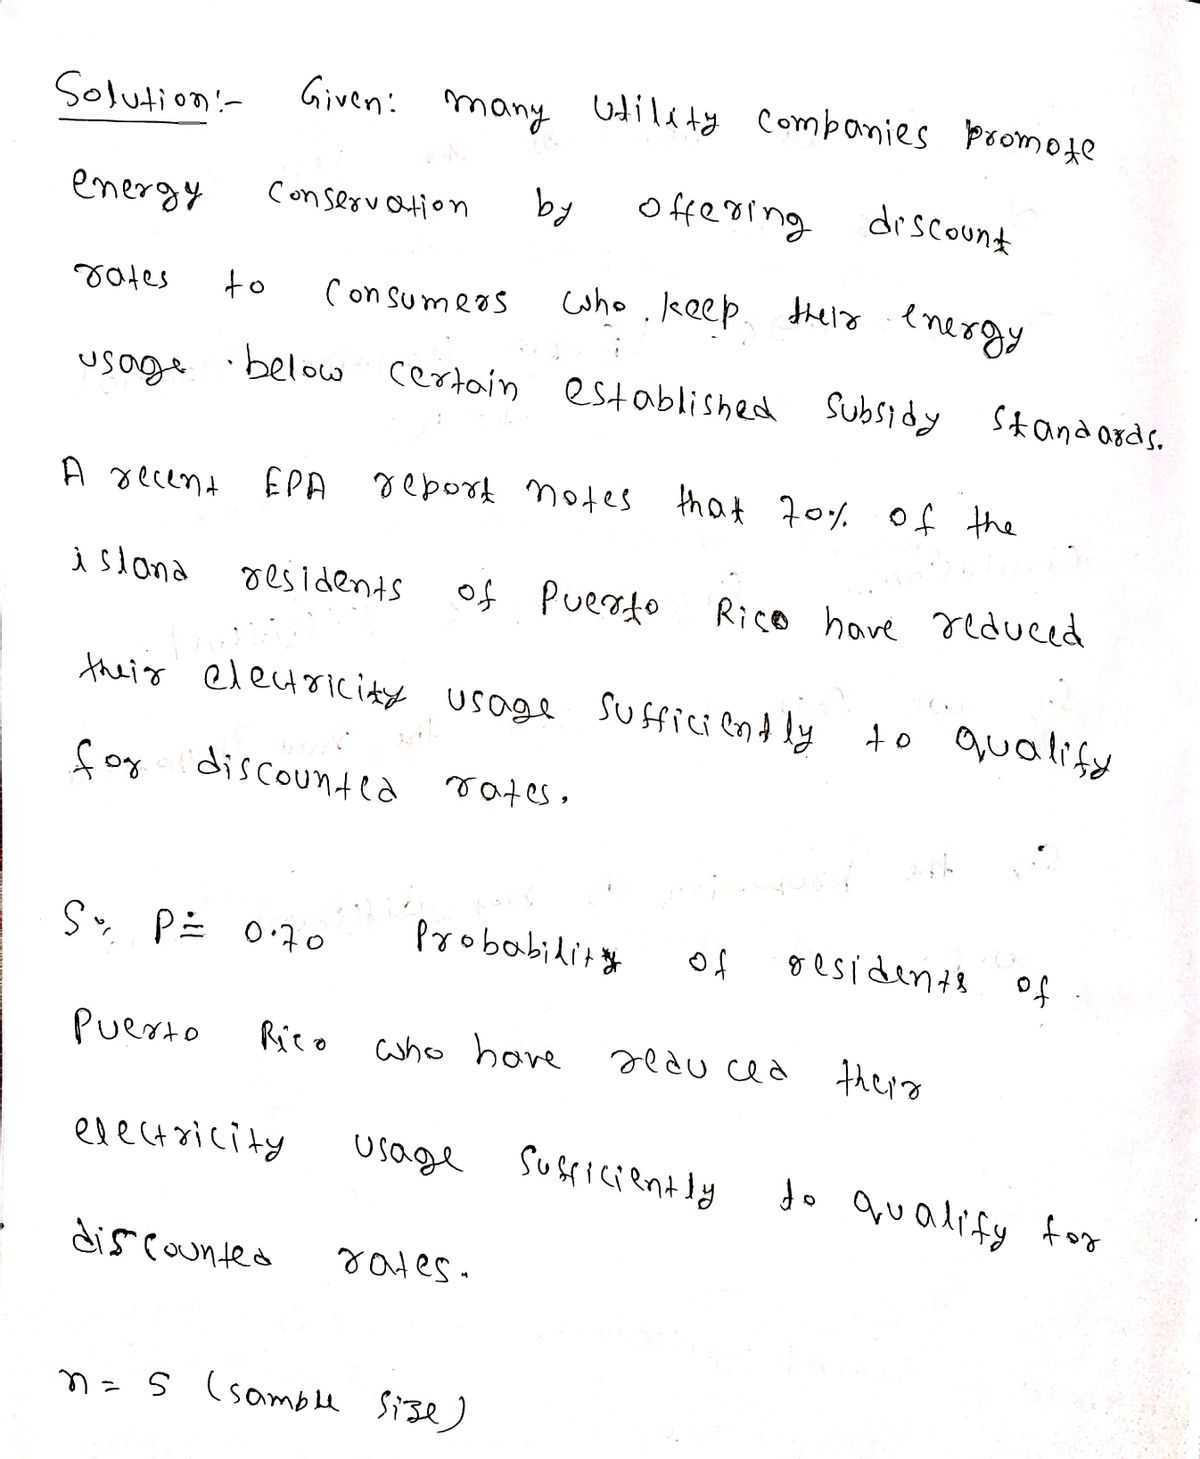 Solution:- Given: many utility companies promote
energy conservation by offering discount
rates to consumers who keep their energy
usage below certain established subsidy standards.
A recent EPA report notes that 70% of the
island residents of Puerto Rico have reduced
their electricity usage sufficiently to qualify
for discounted rates.
So, P = 0.70 Probability of residents of
Puerto Rico who have reduced their
electricity usage sufficiently to qualify for
discounted rates.
n = 5 (sample size)